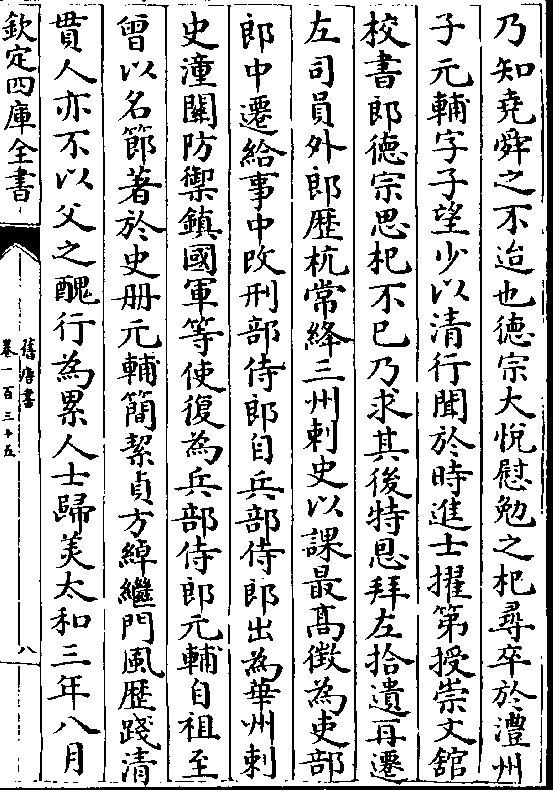 乃知堯舜之不迨也德宗大悅慰勉之杞尋卒於澧州
子元輔字子望少以清行聞於時進士擢第授崇文舘
校書郎德宗思杞不已乃求其後特恩拜左拾遺再遷
左司員外郎歴杭常絳三州刺史以課最髙徴為吏部
郎中遷給事中改刑部侍郎自兵部侍郎出為華州刺
史潼關防禦鎮國軍等使復為兵部侍郎元輔自祖至
曾以名節著於史册元輔簡絜貞方綽繼門風歴踐清
貫人亦不以父之醜行為累人士歸美太和三年八月
欽定四庫全書
舊唐書
卷一百三十五
八